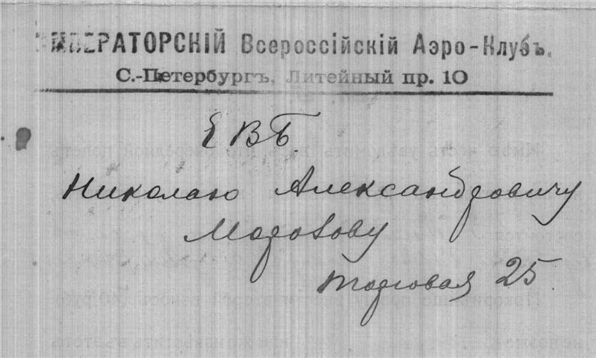 ИМПЕРАТОРСКІЙ Всероссійскій Аэро-Клубъ.
С.-Петербургъ, Литейный пр. 10
ЕВБ
Николаю Александровичу
Морозову
Торговая 25.